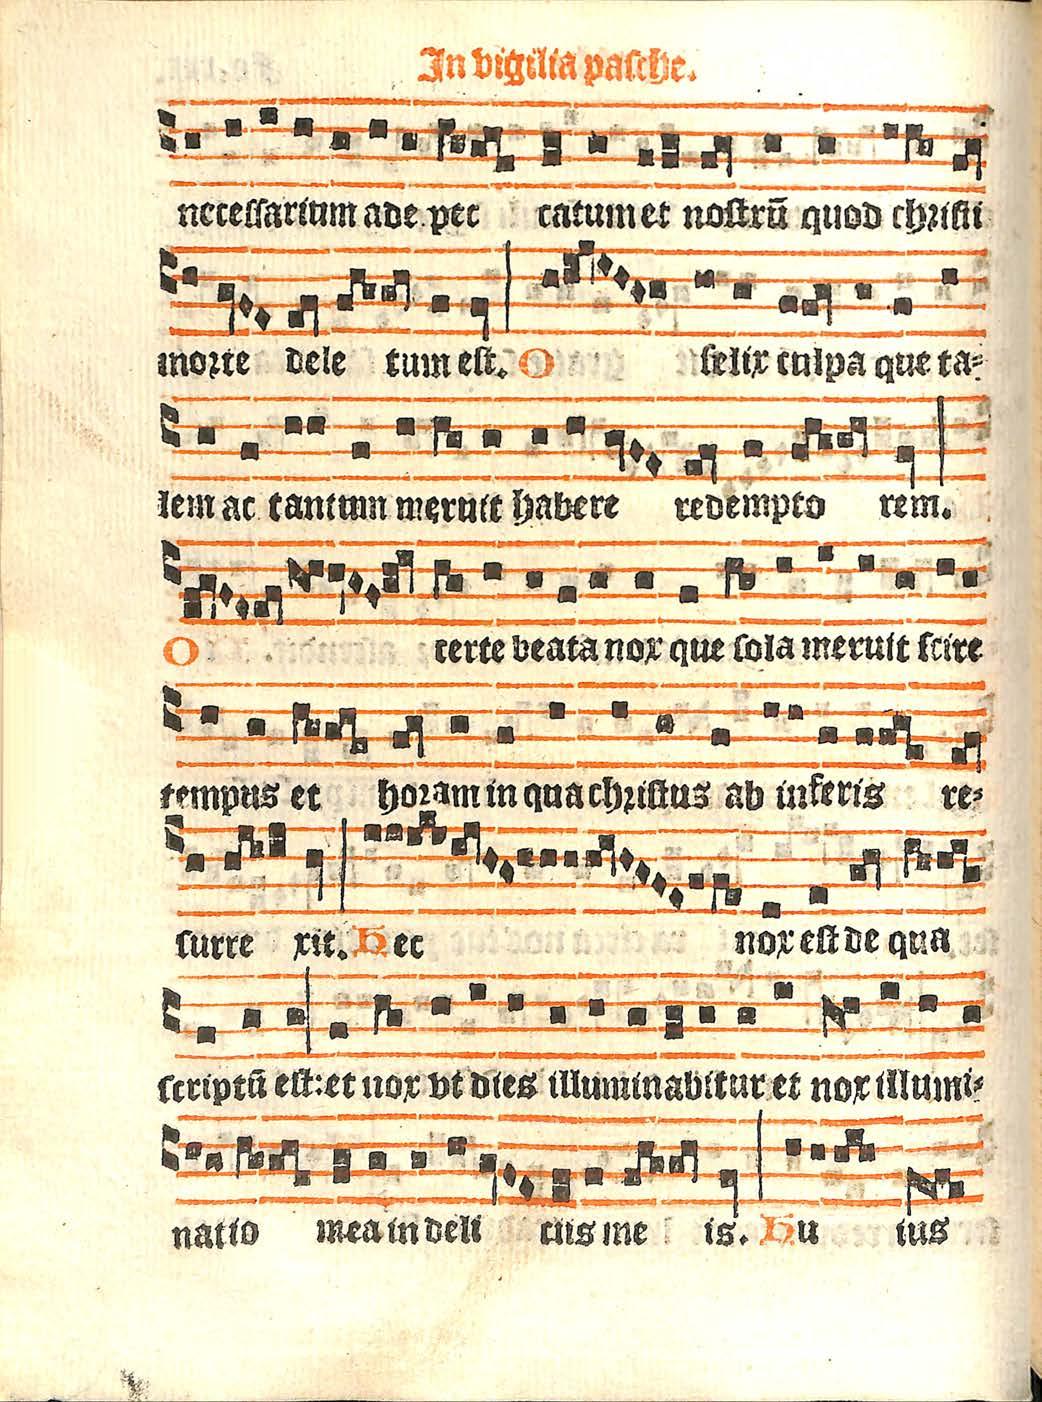 In vigilia pasche.
necessarium ade pec catum et nostrū quod christi
morte dele tum est. O felix culpa que ta-
lem ac tantum meruit habere redempto rem.
O certe beata nox que sola meruit scire
tempus et horam in qua christus ab inferis re-
surre xit. Hec nox est de qua
scriptū est: et nox vt dies illuminabitur et nox illumi-
natio mea in deli ciis me is. Hu ius